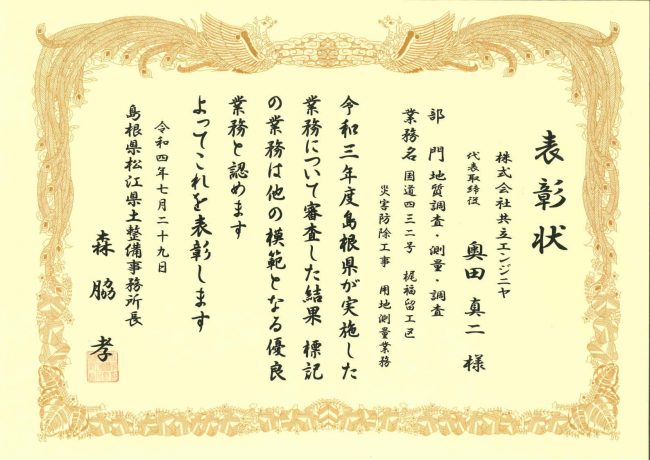 表彰状
株式会社共立エンジニヤ
代表取締役 奥田真二 様
部門 地質調査・測量・調査
業務名 国道四三二号 梶福留工区
災害防除工事 用地測量業務
令和三年度島根県が実施した
業務について審査した結果 標記
の業務は他の模範となる優良
業務と認めます
よってこれを表彰します
令和四年七月二十九日
島根県松江県土整備事務所長
森脇孝